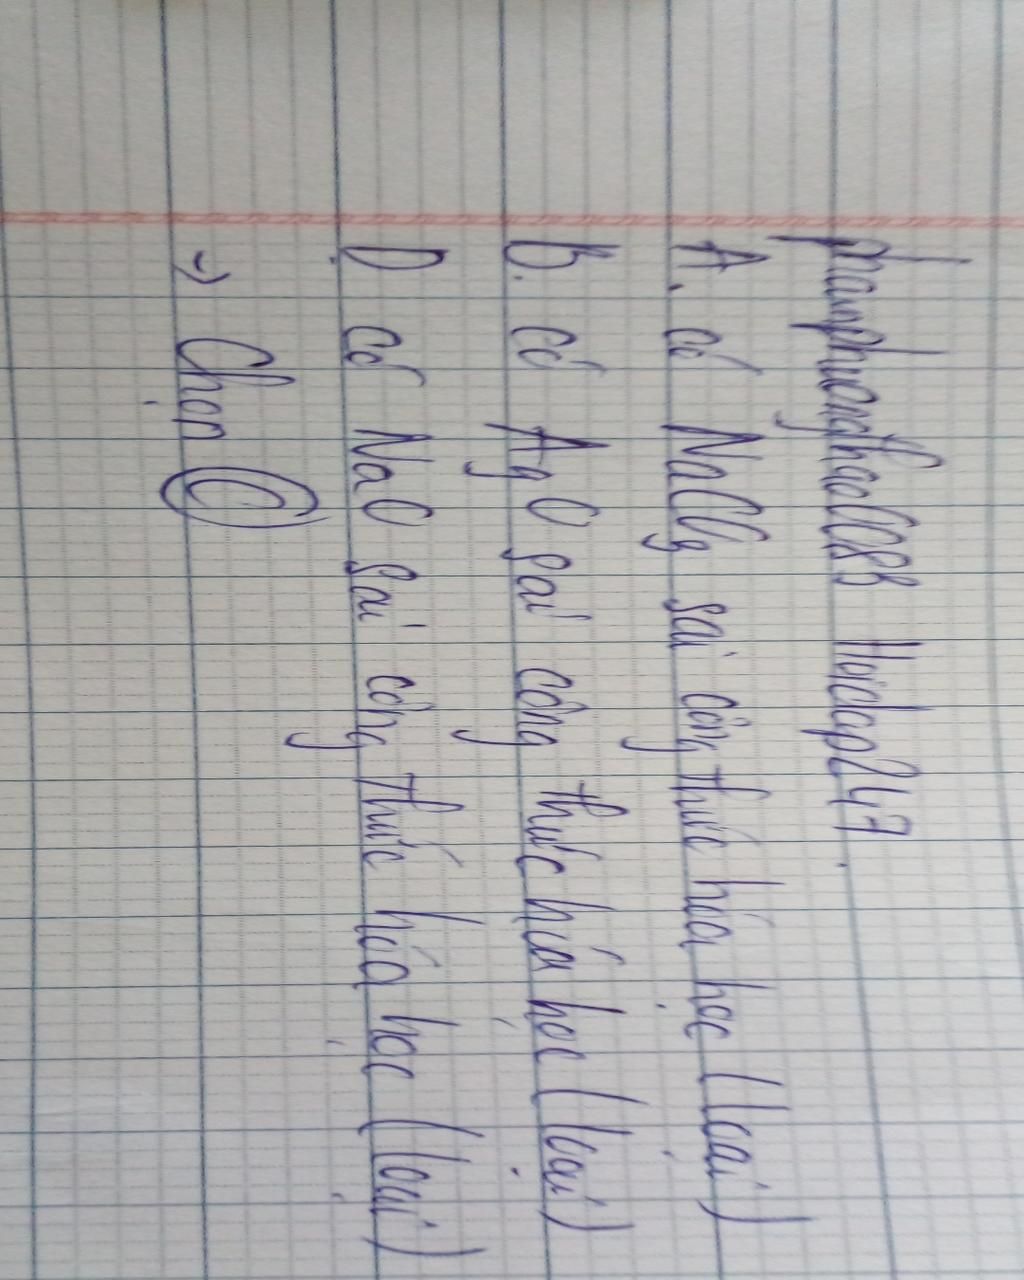 phamphuongthao1083 Hoidap247.
A. có NaCO3 sai công thức hóa học (loại)
B. có AgO sai công thức hóa học (loại)
D có NaO sai công thức hóa học (loại)
→ Chọn C